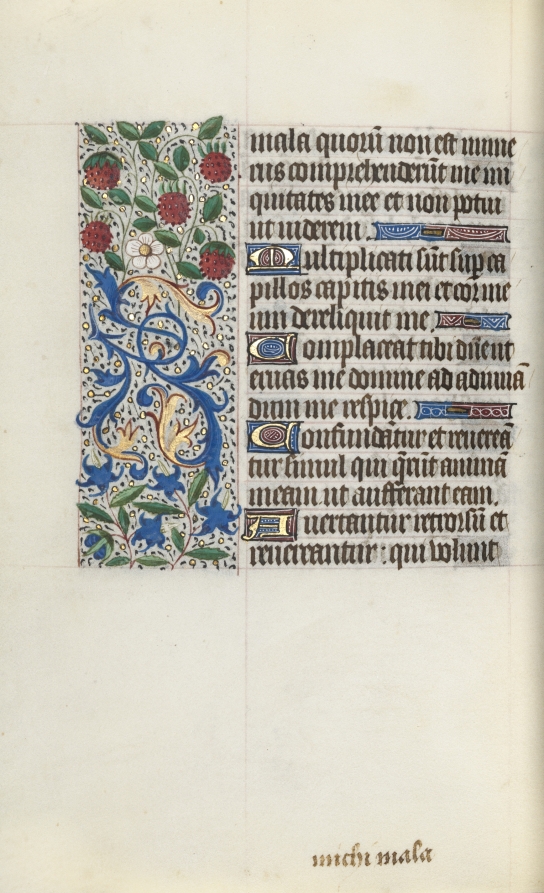 mala quorū non est nume
rus comprehenderūt me ini
quitates mee et non potui
ut viderem
Multiplicati sūt sup ca
pillos capitis mei et cor me
um dereliquit me
Complaceat tibi dn̄e ut
eruas me domine ad adiuuā
dum me respice
Confundātur et reuereā
tur simul qui q̄rūt animā
meam ut aufferant eam
Auertantur retrorsū et
reuereantur : qui volunt
michi mala